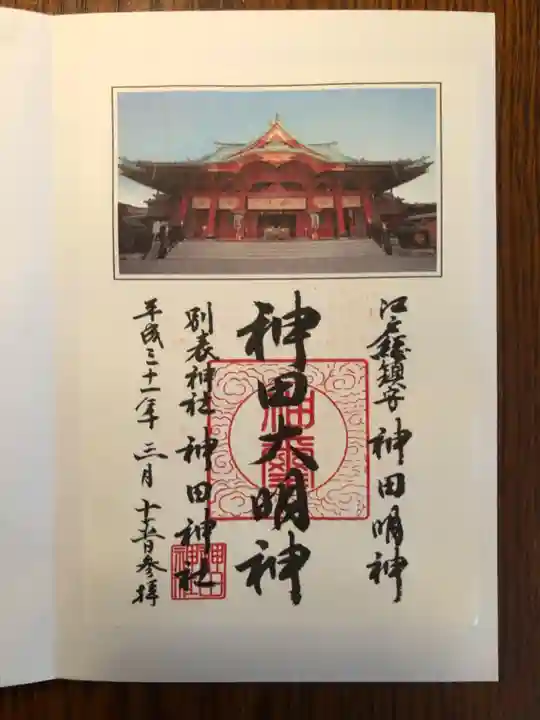 江戸総鎮守 神田明神
神田大明神
別表神社 神田神社
平成三十一年 三月 十五日参拝
神田神社